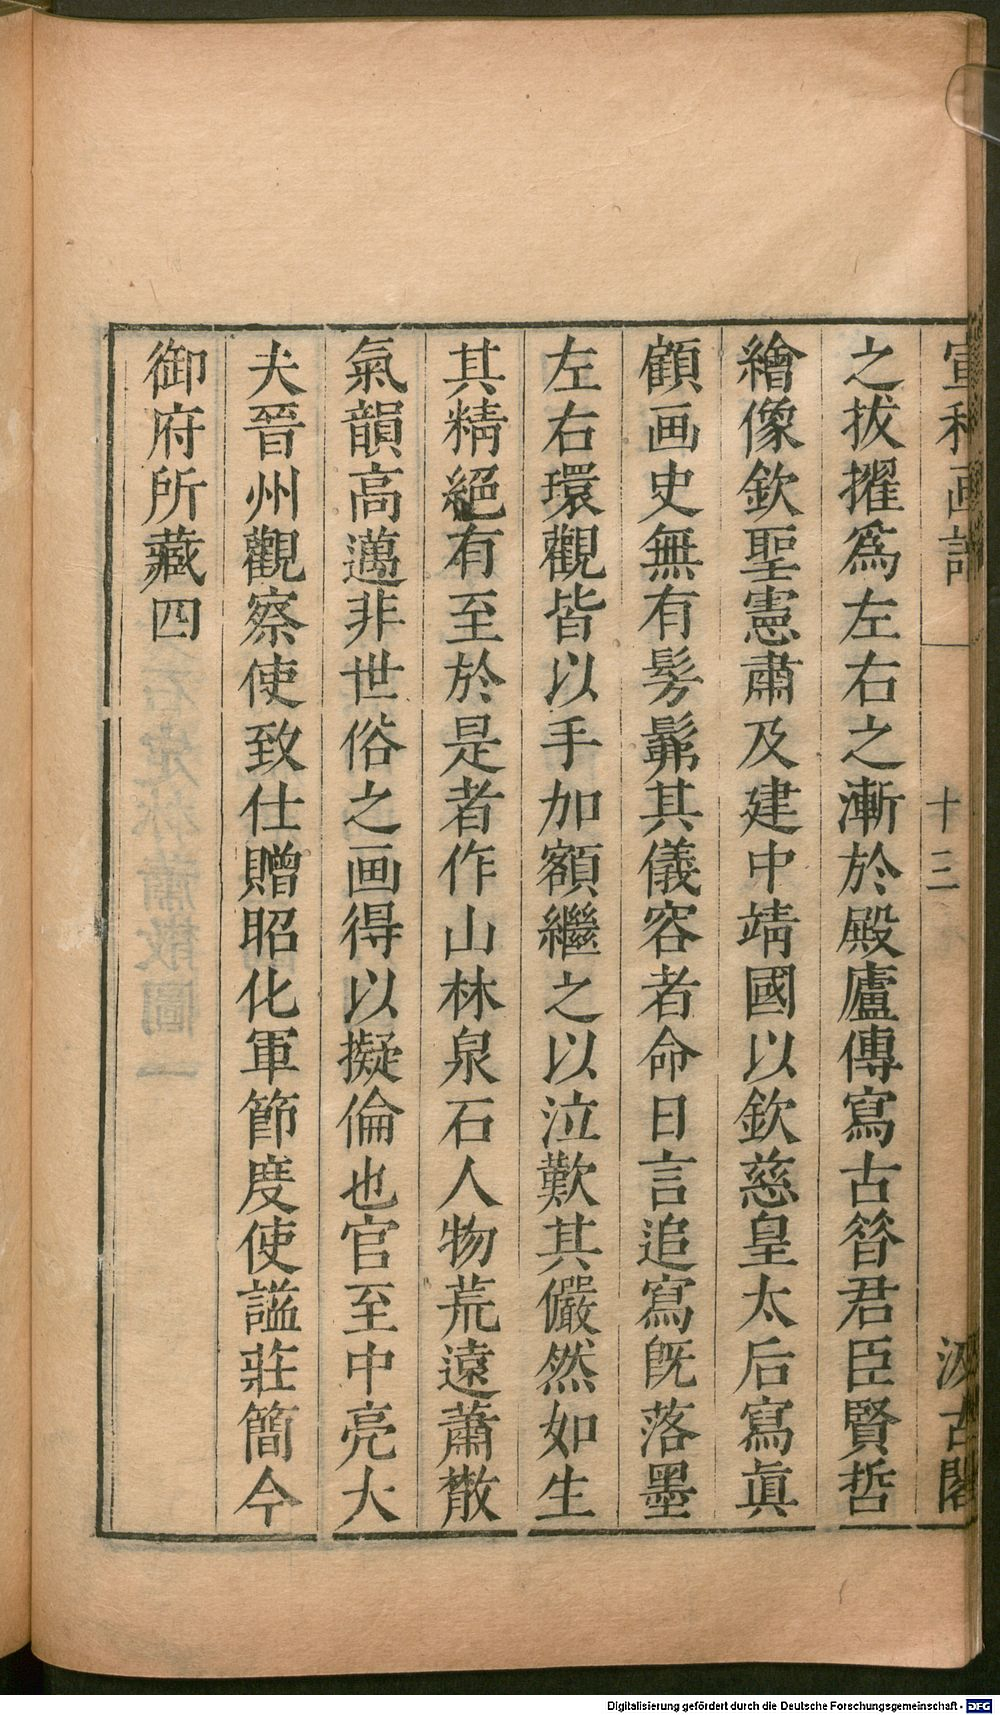 宣和画譜
十三
汲古閣
之拔擢爲左右之漸於殿廬傳寫古昝君臣賢哲
繪像欽聖憲肅及建中靖國以欽慈皇太后寫眞
顧画史無有髣髴其儀容者命日言追寫旣落墨
左右環觀皆以手加額繼之以泣歎其儼然如生
其精絕有至於是者作山林泉石人物荒遠蕭散
氣韻高邁非世俗之画得以擬倫也官至中亮大
夫晉州觀察使致仕贈昭化軍節度使謚莊簡今
御府所藏四
Digitalisierung gefördert durch die Deutsche Forschungsgemeinschaft - DFG